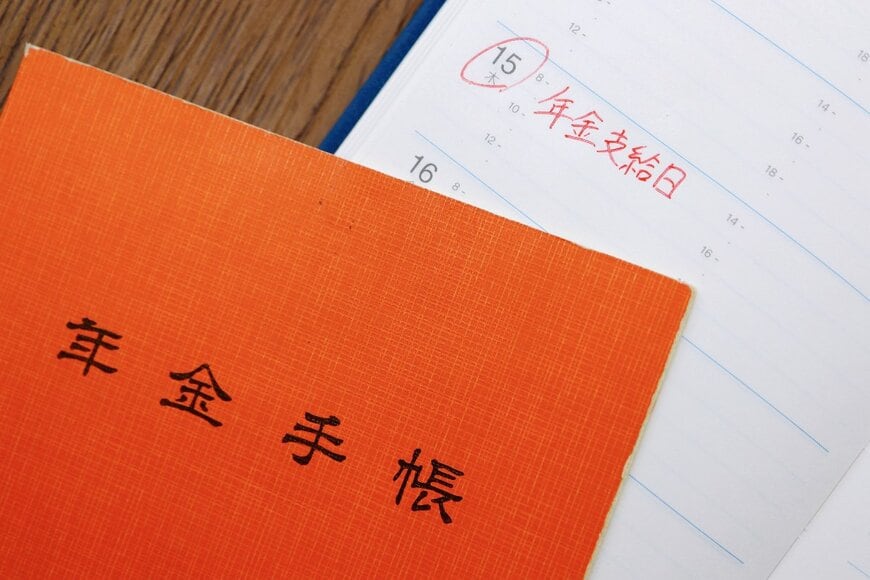 12-
18-
15
木
8-
10-
12-
年金支給日
14-
16-
18-
16
8-
14-
16-
年金手帳